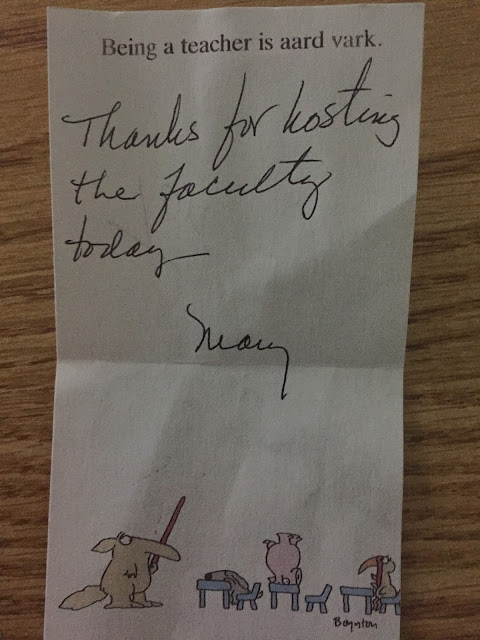 Being a teacher is aard vark.
Thanks for hosting
the faculty
today
Mary
Boynton